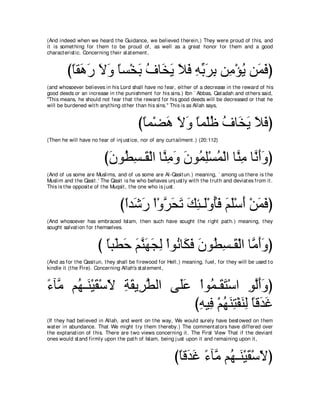 (And indeed when we heard the Guidance, we believed therein,) They were proud of this, and
it is something for them to be proud of, as well as a great honor for them and a good
characteristic. Concerning their statement,
(فَمَن يُؤْمِن بِرَبِّهِ فَلاَ يَخَافُ بَخْساً وَلاَ رَهَقاً)
(and whosoever believes in his Lord shall have no fear, either of a decrease in the reward of his
good deeds or an increase in the punishment for his sins.) Ibn `Abbas, Qatadah and others said,
"This means, he should not fear that the reward for his good deeds will be decreased or that he
will be burdened with anything other than his sins." This is as Allah says,
(فَلاَ يَخَافُ ظُلْماً وَلاَ هَضْماً)
(Then he will have no fear of injustice, nor of any curtailment.) (20:112)
(وَأَنَّا مِنَّا الْمُسْلِمُونَ وَمِنَّا الْقَـسِطُونَ)
(And of us some are Muslims, and of us some are Al-Qasitun.) meaning, `among us there is the
Muslim and the Qasit.' The Qasit is he who behaves unjustly with the truth and deviates from it.
This is the opposite of the Muqsit, the one who is just.
(فَمَنْ أَسْلَمَ فَأُوْلَـئِكَ تَحَرَّوْاْ رَشَداً)
(And whosoever has embraced Islam, then such have sought the right path.) meaning, they
sought salvation for themselves.
(وَأَمَّا الْقَـسِطُونَ فَكَانُواْ لِجَهَنَّمَ حَطَباً )
(And as for the Qasitun, they shall be firewood for Hell,) meaning, fuel, for they will be used to
kindle it (the Fire). Concerning Allah's statement,
(وَأَلَّوِ اسْتَقَـمُواْ عَلَى الطَّرِيقَةِ لاَسْقَيْنَـهُم مَّآءً
غَدَقاً لِنَفْتِنَهُمْ فِيهِ)
(If they had believed in Allah, and went on the way, We would surely have bestowed on them
water in abundance. That We might try them thereby.) The commentators have differed over
the explanation of this. There are two views concerning it. The First View That if the deviant
ones would stand firmly upon the path of Islam, being just upon it and remaining upon it,
(لاَسْقَيْنَـهُم مَّآءً غَدَقاً)